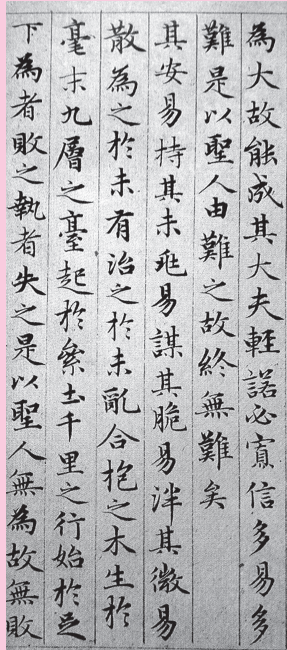 為大故能成其大夫輕諾必寡信多易多
難是以聖人由難之故終無難矣
其安易持其未兆易謀其脆易泮其微易
散為之於未有治之於未亂合抱之木生於
毫末九層之臺起於累土千里之行始於足
下為者敗之執者失之是以聖人無為故無敗